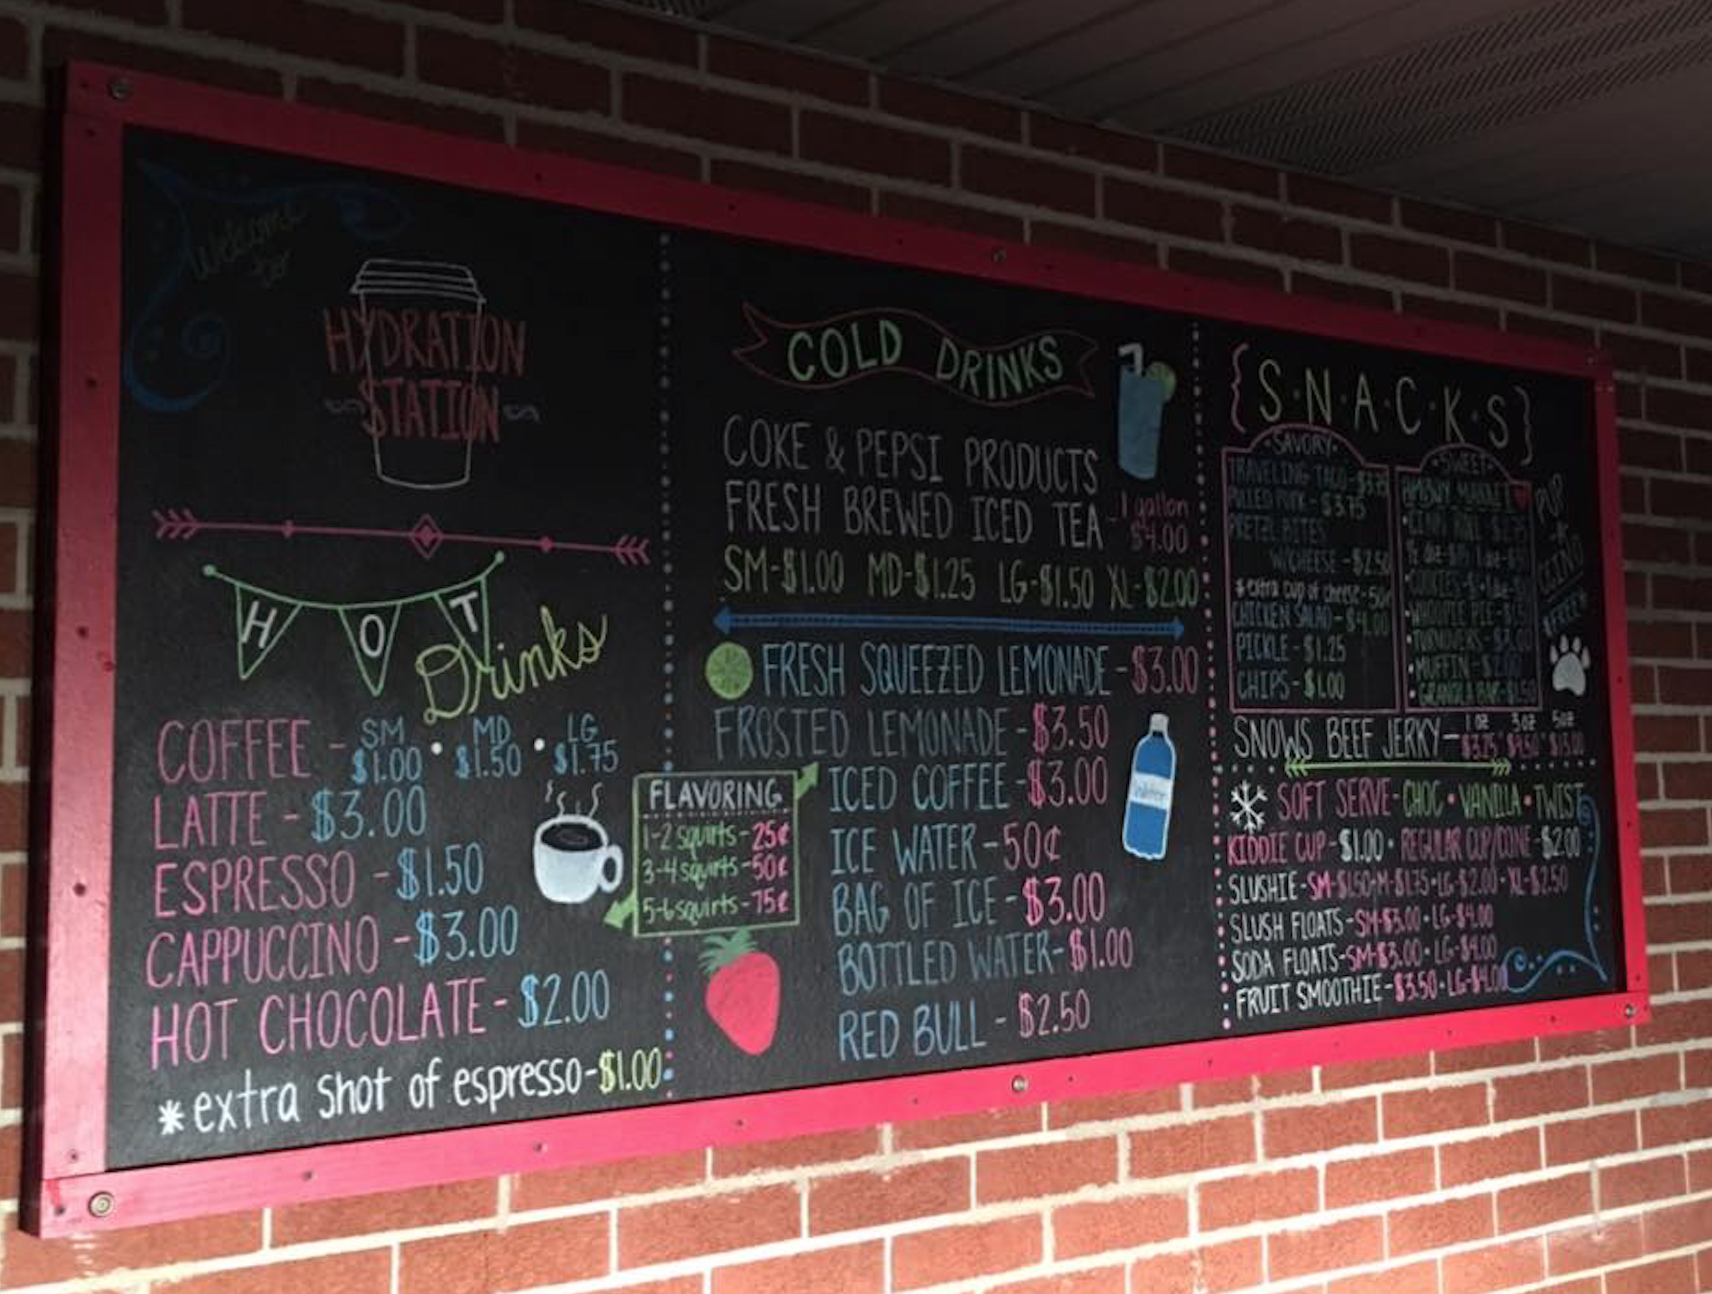 Welcome
to
HYDRATION
STATION
HOT
Drinks
COFFEE - SM $1.00 • MD $1.50 • LG $1.75
LATTE - $3.00
ESPRESSO - $1.50
CAPPUCCINO - $3.00
HOT CHOCOLATE - $2.00
*extra shot of espresso - $1.00
COLD DRINKS
COKE & PEPSI PRODUCTS
FRESH BREWED ICED TEA - 1 gallon $4.00
SM-$1.00 MD-$1.25 LG-$1.50 XL-$2.00
FRESH SQUEEZED LEMONADE - $3.00
FROSTED LEMONADE - $3.50
ICED COFFEE - $3.00
ICE WATER - 50¢
BAG OF ICE - $3.00
BOTTLED WATER - $1.00
RED BULL - $2.50
Water
FLAVORING
1-2 squirts - 25¢
3-4 squirts - 50¢
5-6 squirts - 75¢
{S·N·A·C·K·S}
•SAVORY•
TRAVELING TACO - $3.75
PULLED PORK - $3.75
PRETZEL BITES
W/CHEESE - $2.50
*extra cup of cheese - 50¢
CHICKEN SALAD - $4.00
PICKLE - $1.25
CHIPS - $1.00
•SWEET•
COOKIES
WHOOPIE PIE
TURNOVERS
MUFFIN
GRANOLA BAR - $1.50
PUP
CCINO
FREE
SNOWS BEEF JERKY - 1oz $3.75 3oz $9.50 5oz $15.00
SOFT SERVE - CHOC • VANILLA • TWIST
KIDDIE CUP - $1.00 • REGULAR CUP/CONE - $2.00
SLUSHIE - SM-$1.50 • M-$1.75 • LG-$2.00 • XL-$2.50
SLUSH FLOATS - SM-$3.00 • LG-$4.00
SODA FLOATS - SM-$3.00 • LG-$4.00
FRUIT SMOOTHIE - $3.50 • LG-$4.00